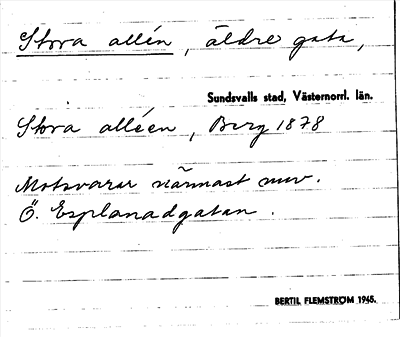 Stora allén, äldre gata,
Sundsvalls stad, Västernorrl. län.
Stora alléen, Berg 1878
Motsvarar närmast nuv.
Ö. Esplanadgatan.
BERTIL FLEMSTRÖM 1945.